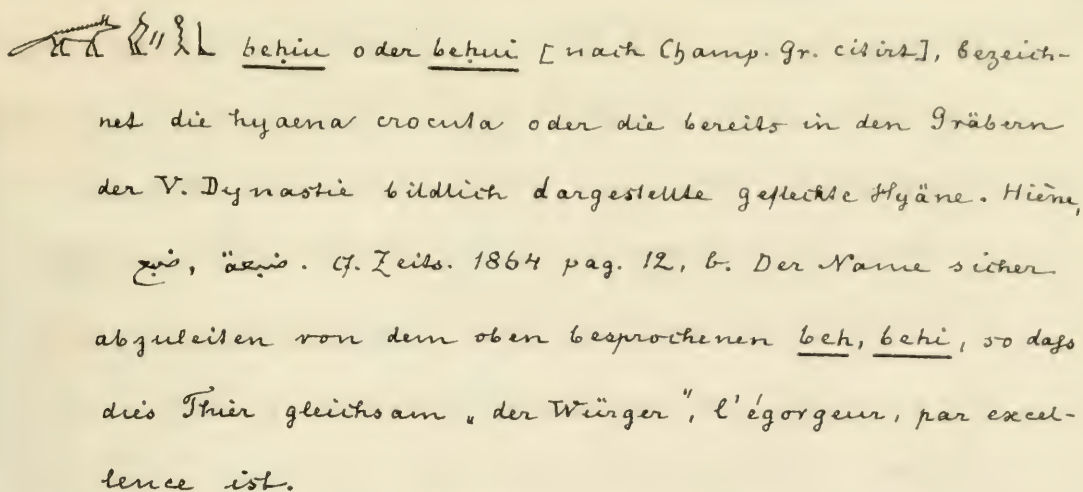 beḥiu oder beḥui [nach Champ. Gr. citirt], bezeich-
net die hyaena crocuta oder die bereits in den Gräbern
der V. Dynastie bildlich dargestellte gefleckte Hyäne. Hiène,
ضبع, ضبعة. cf. Zeits. 1864 pag. 12, b. Der Name sicher
abzuleiten von dem oben besprochenen beh, behi, so daſs
dies Thier gleichsam „der Würger", l'égorgeur, par excel-
lence ist.